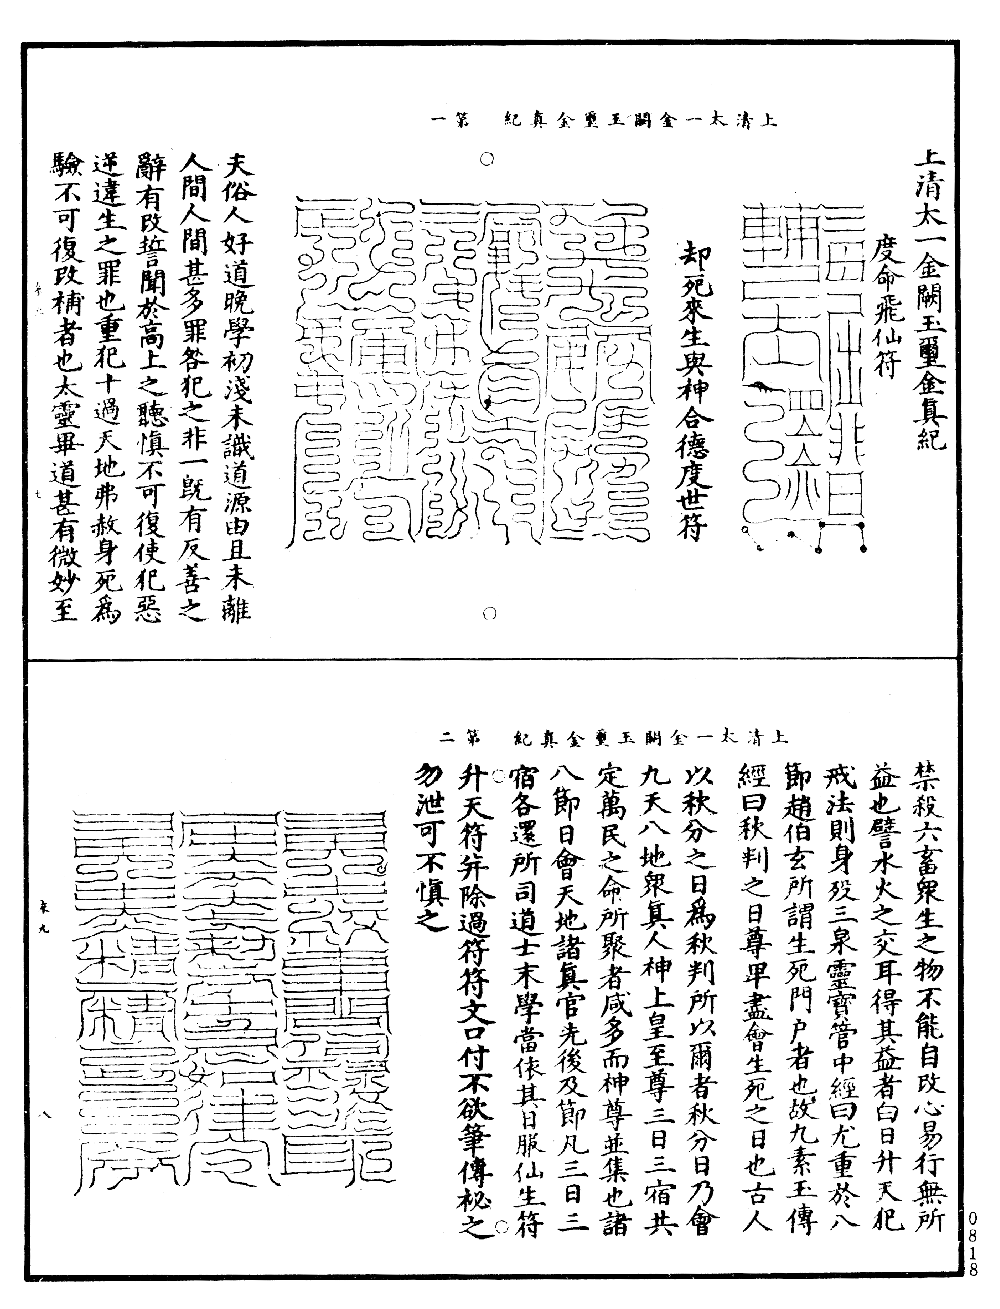 上清太一金闕玉璽金真紀　第一
上清太一金闕玉璽金真紀
度命飛仙符
却死來生與神合德度世符
夫俗人好道晚學初淺未識道源由且未離
人間人間甚多罪咎犯之非一既有反善之
辭有改誓聞於高上之聽慎不可復使犯惡
逆違生之罪也重犯十過天地弗赦身死爲
驗不可復改補者也太靈畢道甚有微妙至
七
上清太一金闕玉璽金真紀　第二
禁殺六畜衆生之物不能自改心易行無所
益也譬水火之交耳得其益者白日升天犯
戒法則身殁三泉靈寶管中經曰尤重於八
節趙伯玄所謂生死門户者也故九素玉傳
經曰秋判之日尊卑盡會生死之日也古人
以秋分之日爲秋判所以爾者秋分日乃會
九天八地衆真人神上皇至尊三日三宿共
定萬民之命所聚者咸多而神尊並集也諸
八節日會天地諸真官先後及節凡三日三
宿各還所司道士末學當依其日服仙生符
升天符并除過符符文口付不欲筆傳祕之
勿泄可不慎之
八
0818